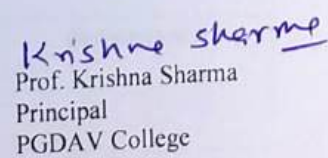 Krishne sharme
Prof. Krishna Sharma
Principal
PGDAV College